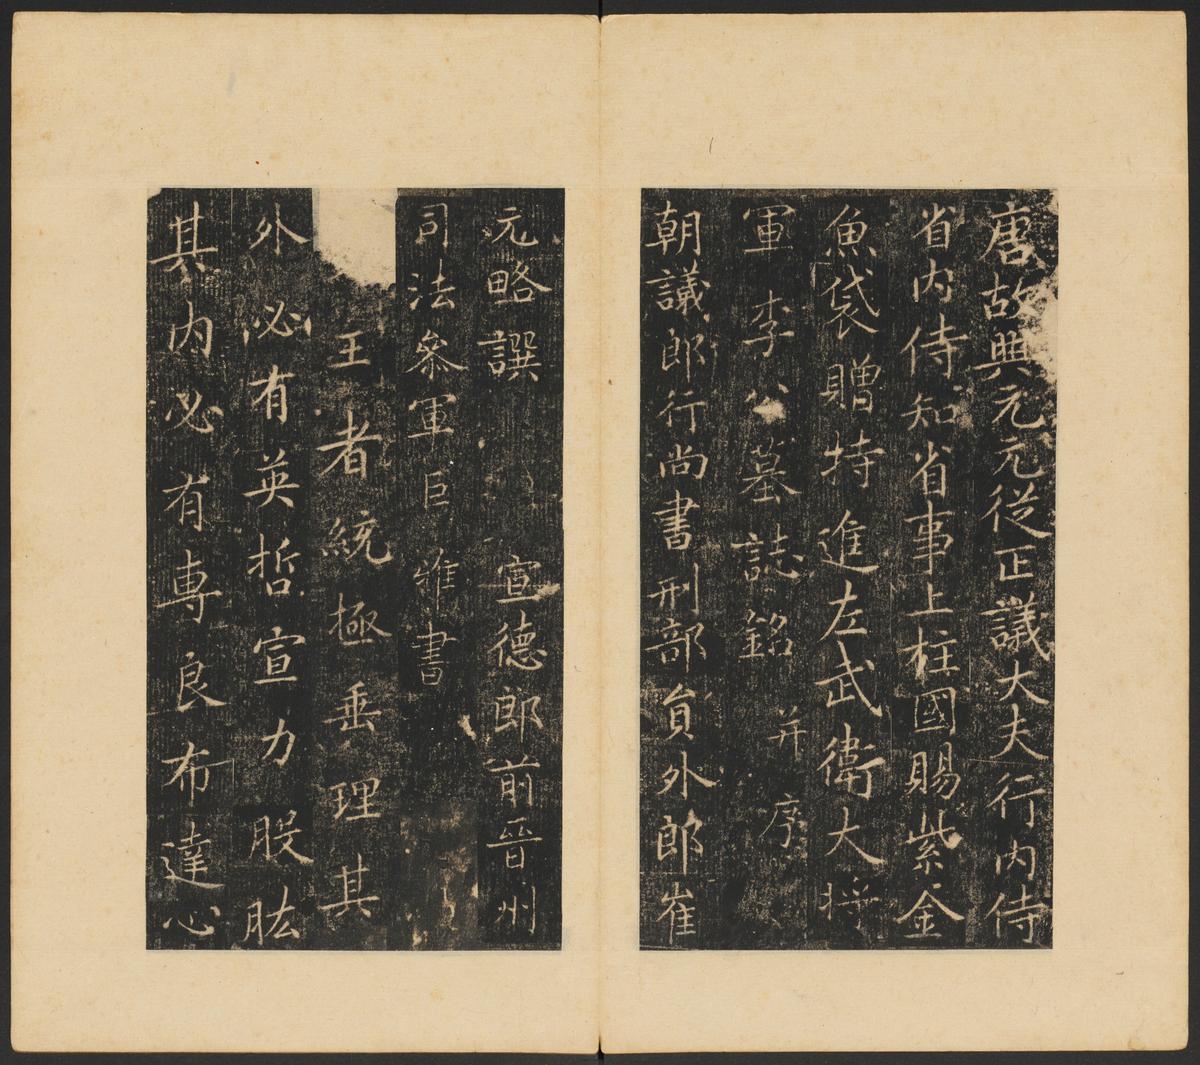 唐故興元元從正議大夫行內侍
省內侍知省事上柱國賜紫金
魚袋贈特進左武衛大將
軍李公墓誌銘并序
朝議郎行尚書刑部員外郎崔
元略譔 宣德郎前晉州
司法參軍巨雅書
王者統極垂理其
外必有英哲宣力股肱
其內必有專良布達心